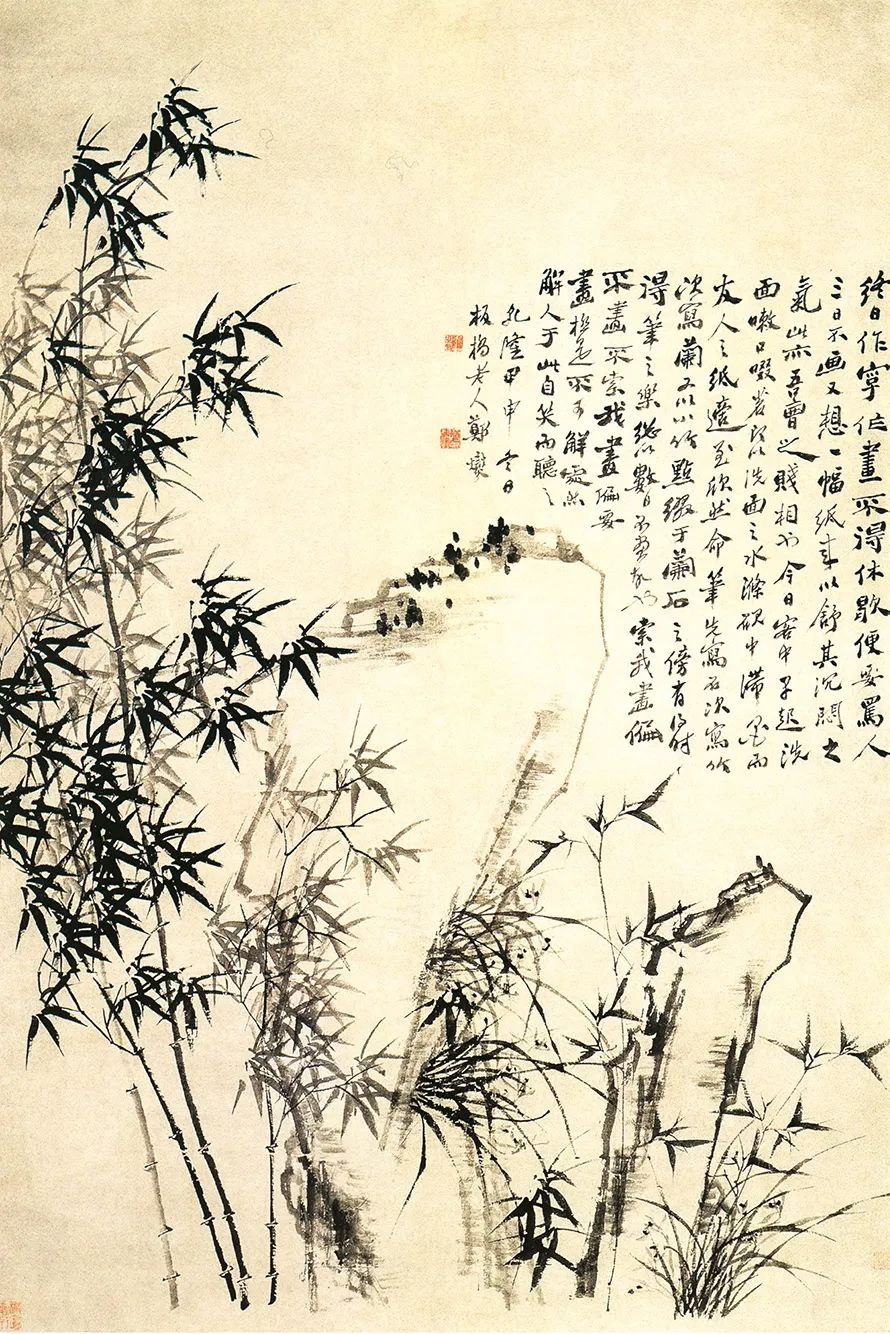 終日作字作畫不得休歇便要罵人
三日不画又想一幅紙來以舒其沉悶之
氣此亦吾曹之賤相也今日晨起
洗面嗽口啜茗即以洗面之水滌硯中滯墨而
友人之紙適至欣然命筆先寫石次寫竹
次寫蘭又以小竹點綴于蘭石之傍有得時
得筆之樂總以數日不畫故也索我畫偏
不畫不索我畫偏要
畫極是不可解處然
解人于此自笑而聽之
乾隆甲申冬日
板橋老人鄭燮